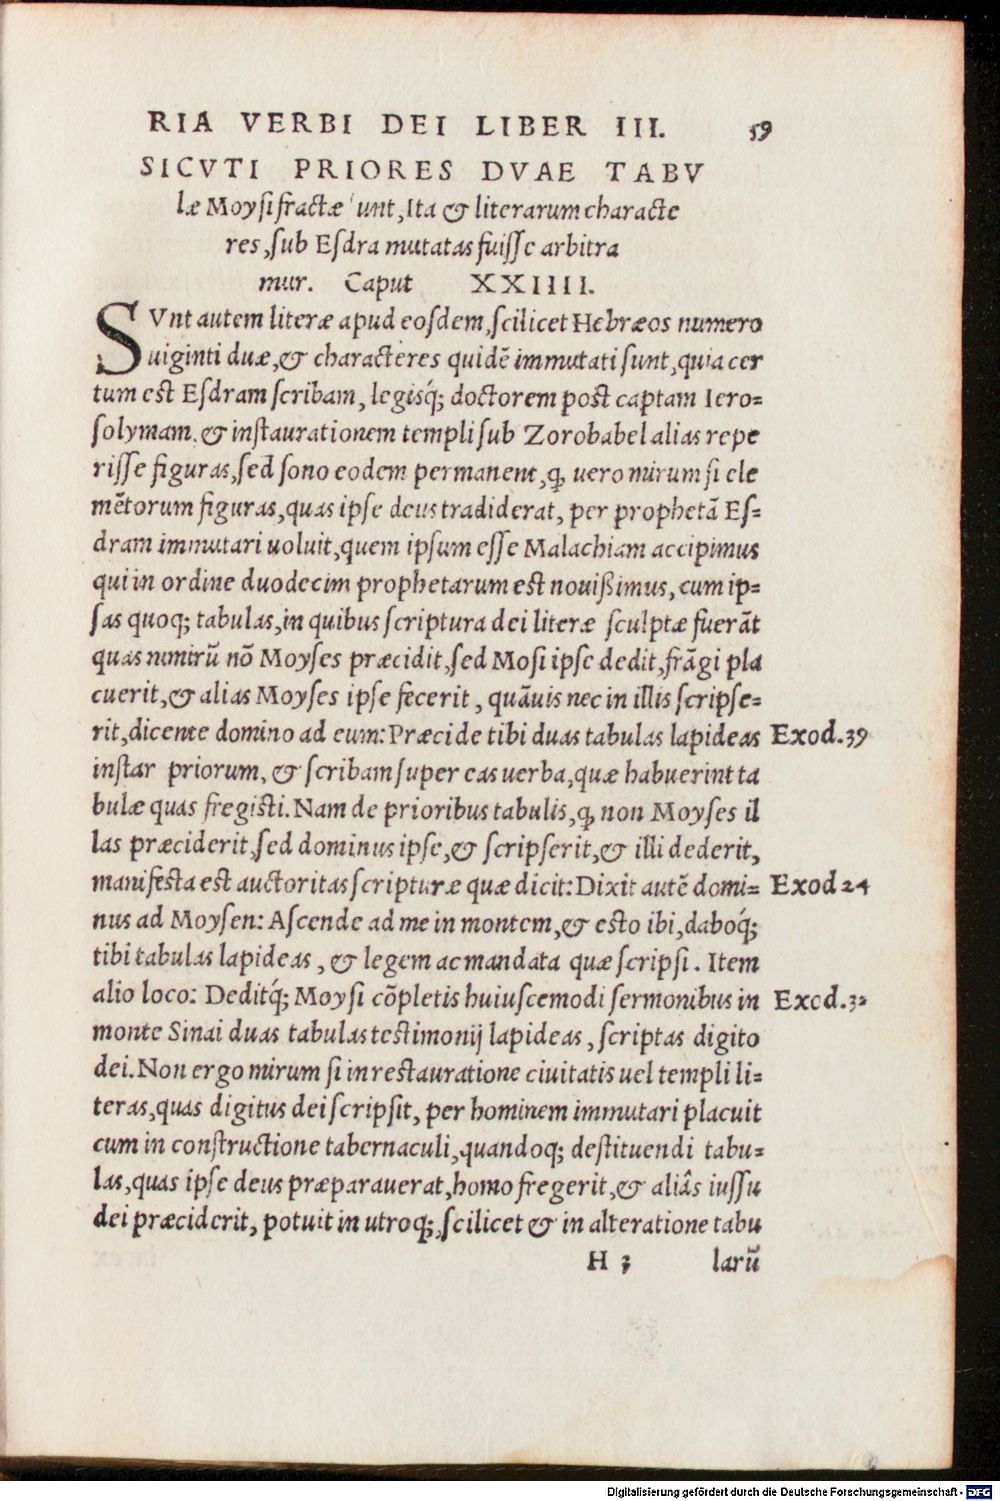 RIA VERBI DEI LIBER III. 59
SICVTI PRIORES DVAE TABV
læ Moysi fractæ sunt, Ita & literarum characte
res, sub Esdra mutatas fuisse arbitra
mur. Caput XXIIII.
SVnt autem literæ apud eosdem, scilicet Hebræos numero
uiginti duæ, & characteres quidē immutati sunt, quia cer
tum est Esdram scribam, legisq́; doctorem post captam Iero=
solymam, & instaurationem templi sub Zorobabel alias repe
risse figuras, sed sono eodem permanent, ꝙ uero mirum si ele
mētorum figuras, quas ipse deus tradiderat, per prophetā Es=
dram immutari uoluit, quem ipsum esse Malachiam accipimus
qui in ordine duodecim prophetarum est nouißimus, cum ip=
sas quoq; tabulas, in quibus scriptura dei literæ sculptæ fuerāt
quas nimirū nō Moyses præcidit, sed Mosi ipse dedit, frāgi pla
cuerit, & alias Moyses ipse fecerit, quāuis nec in illis scripse=
rit, dicente domino ad eum: Præcide tibi duas tabulas lapideas Exod.39
instar priorum, & scribam super eas uerba, quæ habuerint ta
bulæ quas fregisti. Nam de prioribus tabulis, ꝙ non Moyses il
las præciderit, sed dominus ipse, & scripserit, & illi dederit,
manifesta est auctoritas scripturæ quæ dicit: Dixit autē domi= Exod 24
nus ad Moysen: Ascende ad me in montem, & esto ibi, daboq́;
tibi tabulas lapideas, & legem ac mandata quæ scripsi. Item
alio loco: Deditq́; Moysi cōpletis huiuscemodi sermonibus in Exod.32
monte Sinai duas tabulas testimonij lapideas, scriptas digito
dei. Non ergo mirum si in restauratione ciuitatis uel templi li=
teras, quas digitus dei scripsit, per hominem immutari placuit
cum in constructione tabernaculi, quandoq; destituendi tabu=
las, quas ipse deus præparauerat, homo fregerit, & aliâs iussu
dei præciderit, potuit in utroq;, scilicet & in alteratione tabu
H 3 larū
Digitalisierung gefördert durch die Deutsche Forschungsgemeinschaft - DFG